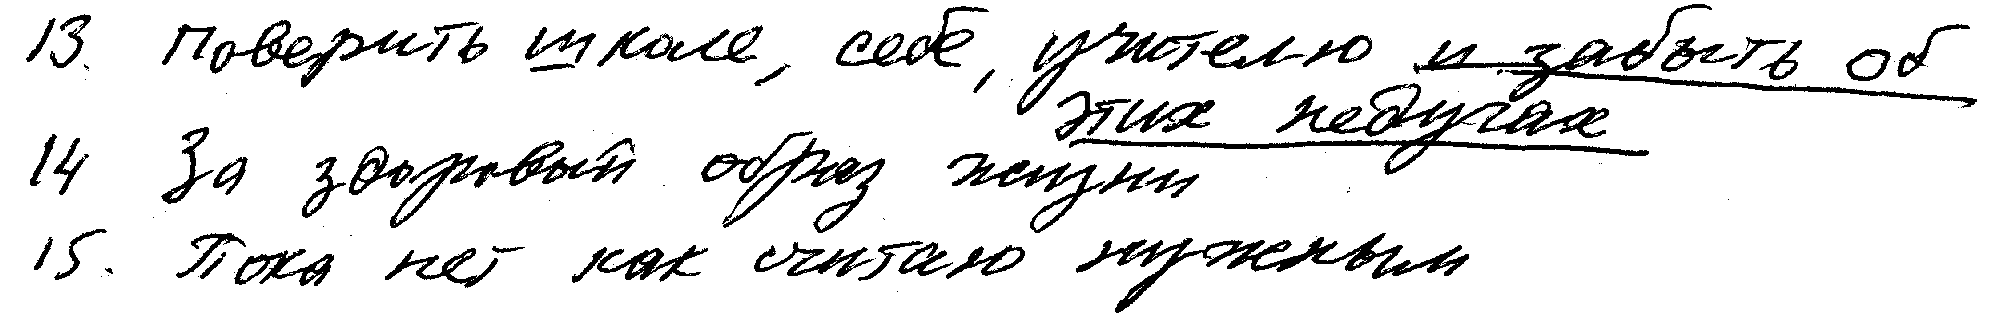 13. Поверить школе, себе, учителю и забыть об
этих недугах
14 За здоровый образ жизни
15. Пока нет как считаю нужным